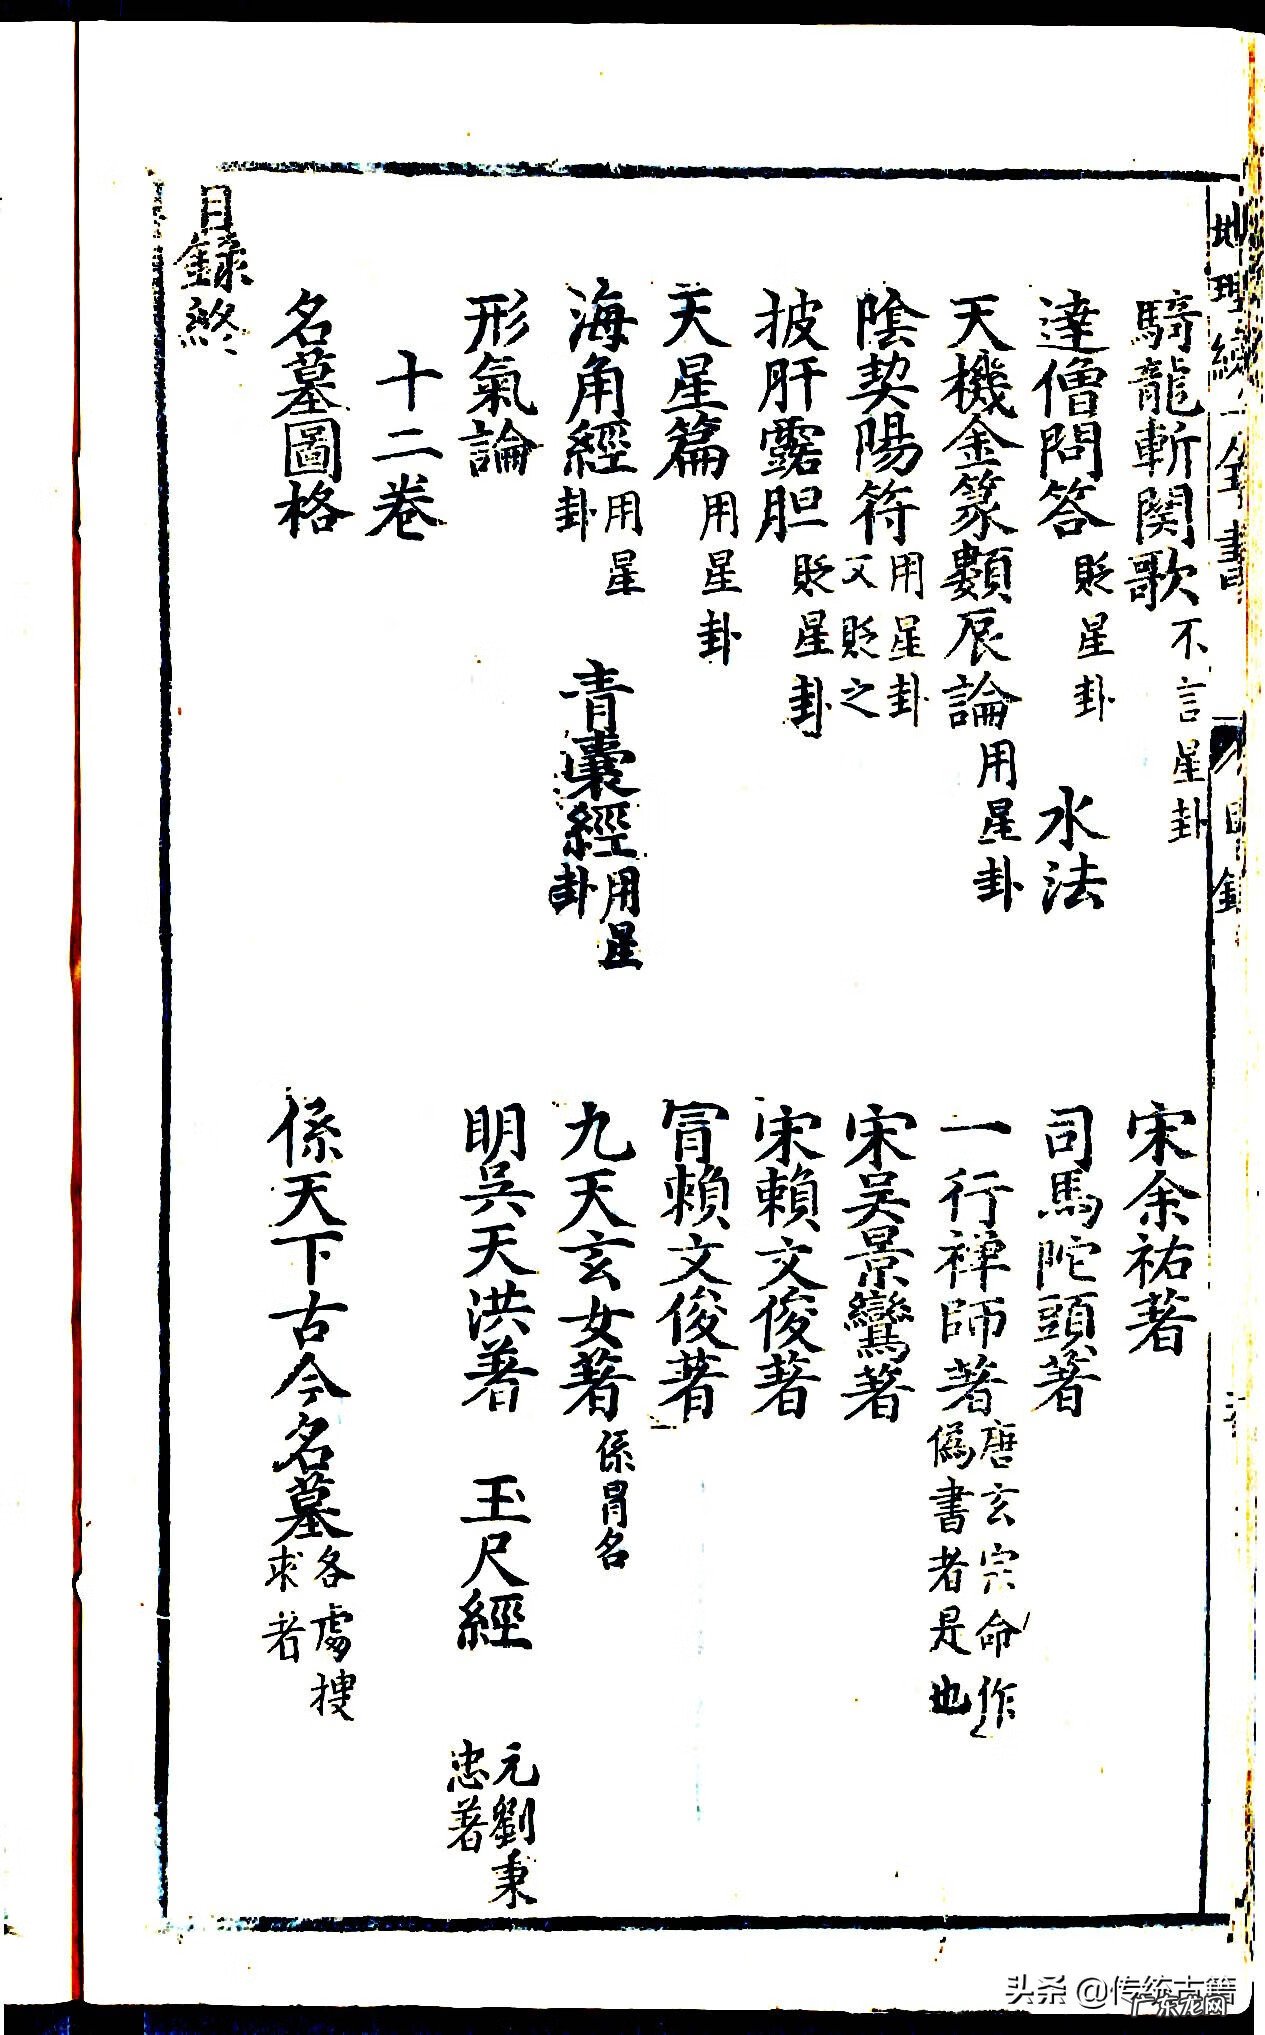 騎龍斬関歌不言星卦　宋余祐著
達僧問答貶星卦　水法　司馬陀頭著
天機金篆數辰論用星卦　一行禪師著唐玄宗命作偽書者是也
陰契陽符用星卦又貶之　宋吳景鸞著
披肝露胆貶星卦　宋賴文俊著
天星篇用星卦　冐賴文俊著
海角經用星卦　青囊經用星卦　九天玄女著係冐名
形氣論　明吳天洪著　玉尺經　元劉秉忠著
十二卷
名墓圖格　係天下古今名墓各處搜求者
目錄終
头条 @传统古籍
广东龙网